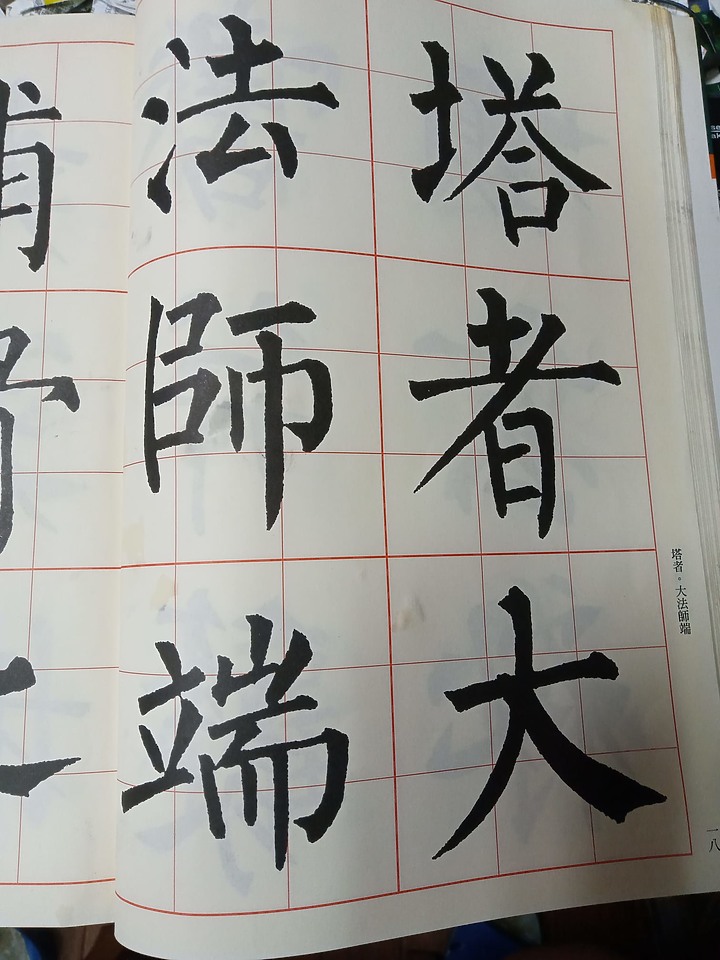 塔者大
法師端
塔者。大法師端
一八